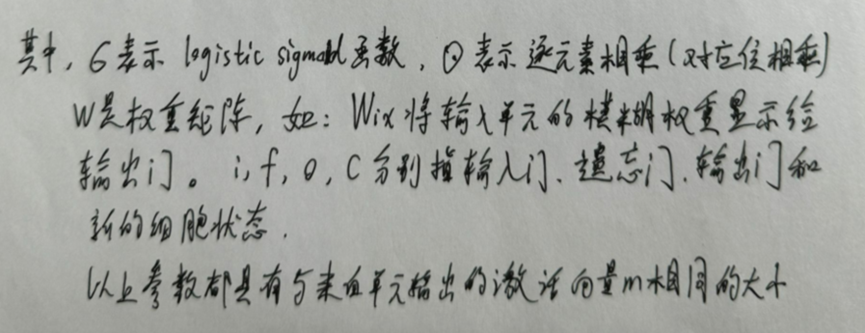 其中，σ表示 logistic sigmoid函数，⊙表示逐元素相乘（对应位相乘）
W是权重矩阵，如：Wix将输入单元的模糊权重显示给
输出门。i，f，o，C分别指输入门、遗忘门、输出门和
新的细胞状态．
以上参数都具有与来自单元输出的激活向量m相同的大小